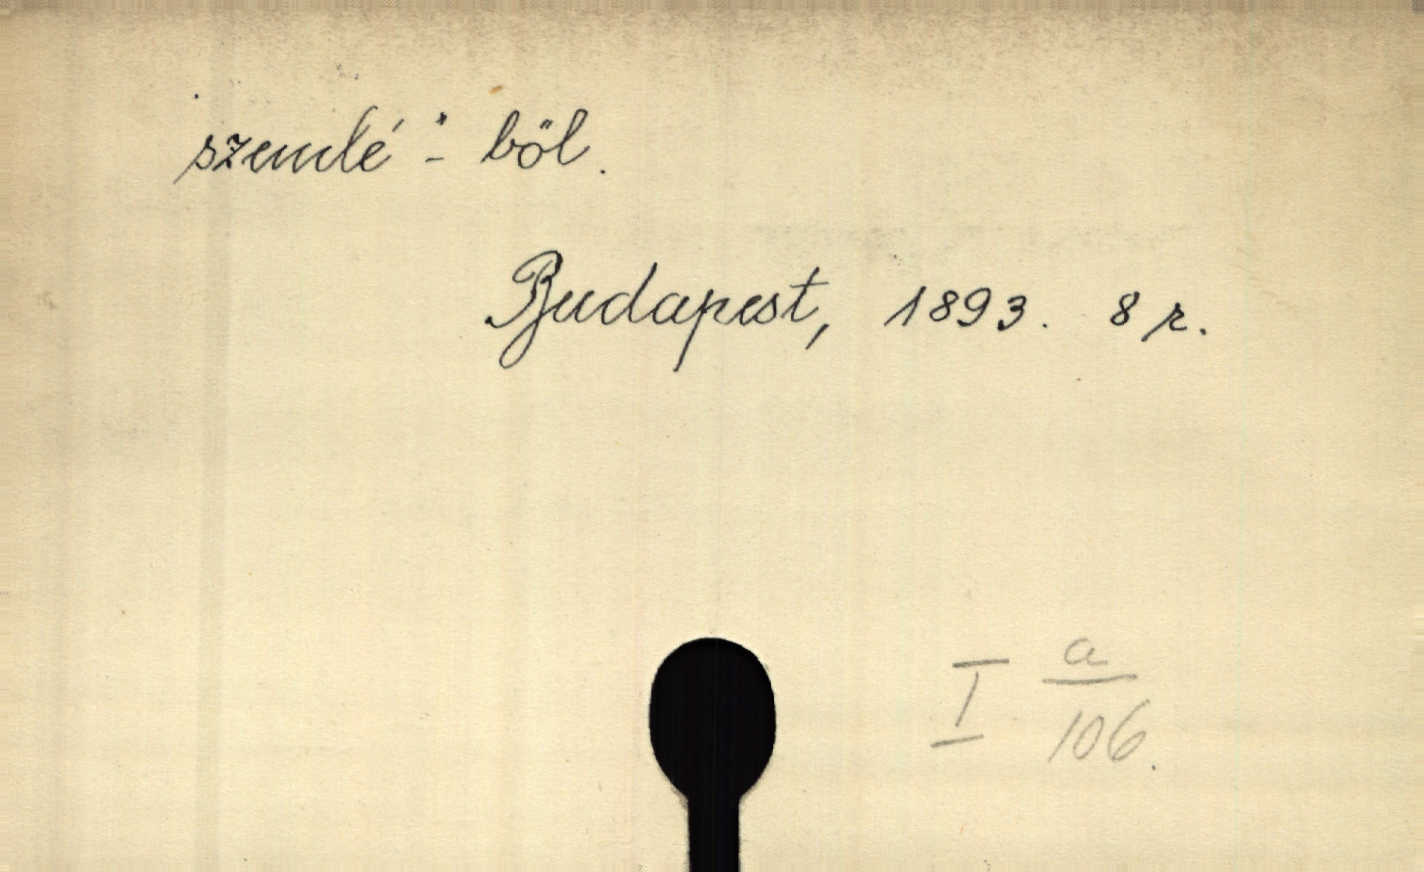 szemlé"- ből.
Budapest, 1893. 8 r.
I a/106.